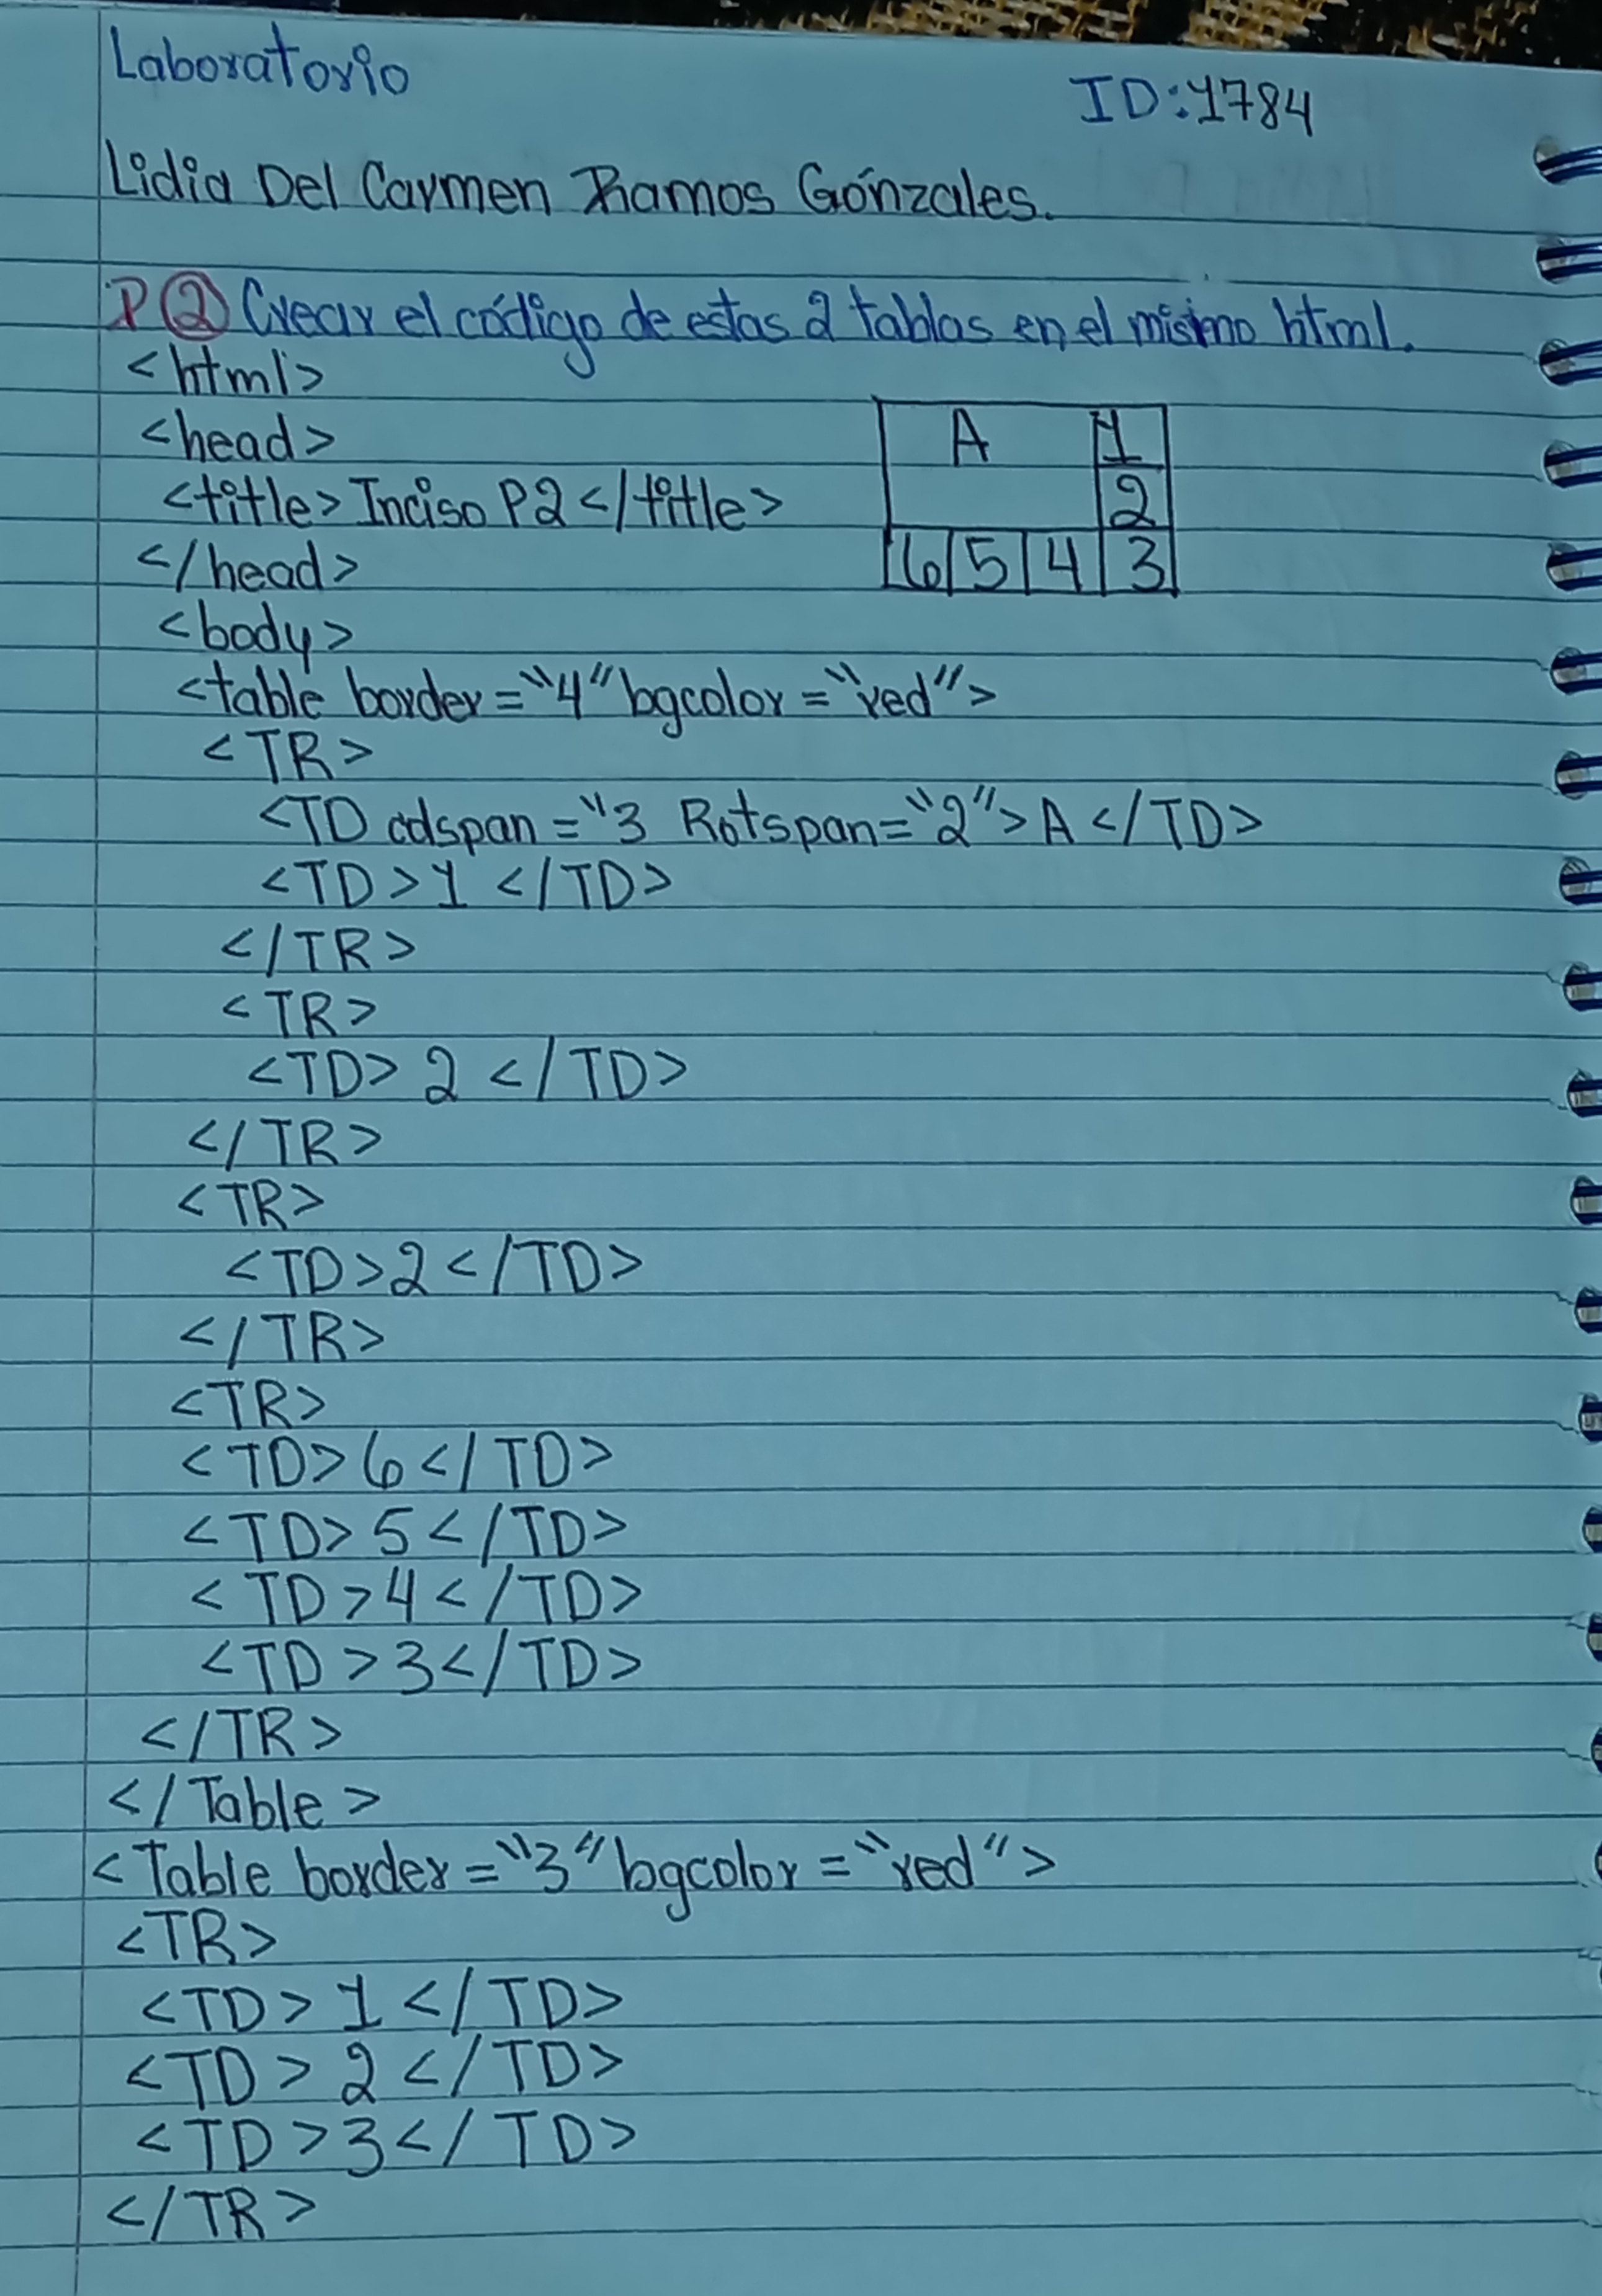 Laboratorio
ID:1784
Lidia Del Carmen Ramos Gónzales.
P2 Crear el código de estas 2 tablas en el mismo html.
<html>
<head>
<title> Inciso P2 </title>
</head>
<body>
A 1
2
6 5 4 3
<table border="4" bgcolor="red">
<TR>
<TD colspan="3 Rotspan="2"> A </TD>
<TD> 1 </TD>
</TR>
<TR>
<TD> 2 </TD>
</TR>
<TR>
<TD> 2 </TD>
</TR>
<TR>
<TD> 6 </TD>
<TD> 5 </TD>
<TD> 4 </TD>
<TD> 3 </TD>
</TR>
</Table>
<Table border="3" bgcolor="red">
<TR>
<TD> 1 </TD>
<TD> 2 </TD>
<TD> 3 </TD>
</TR>